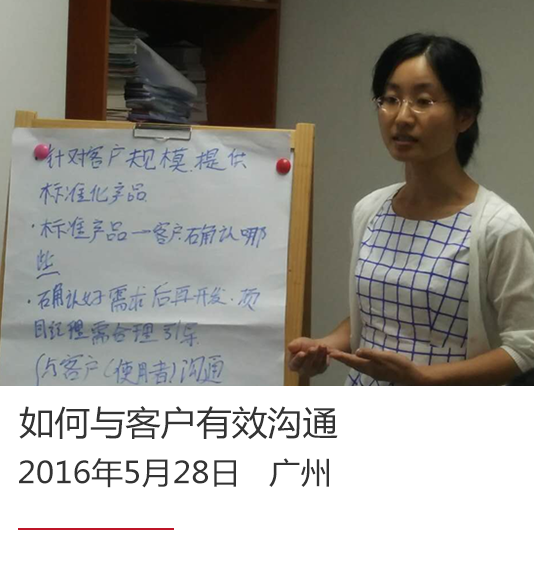 针对客户规模提供
标准化产品
·标准产品—客户确认哪
些
·确认好需求后再开发.项
目经理需合理引导
(与客户(使用者)沟通
如何与客户有效沟通
2016年5月28日 广州